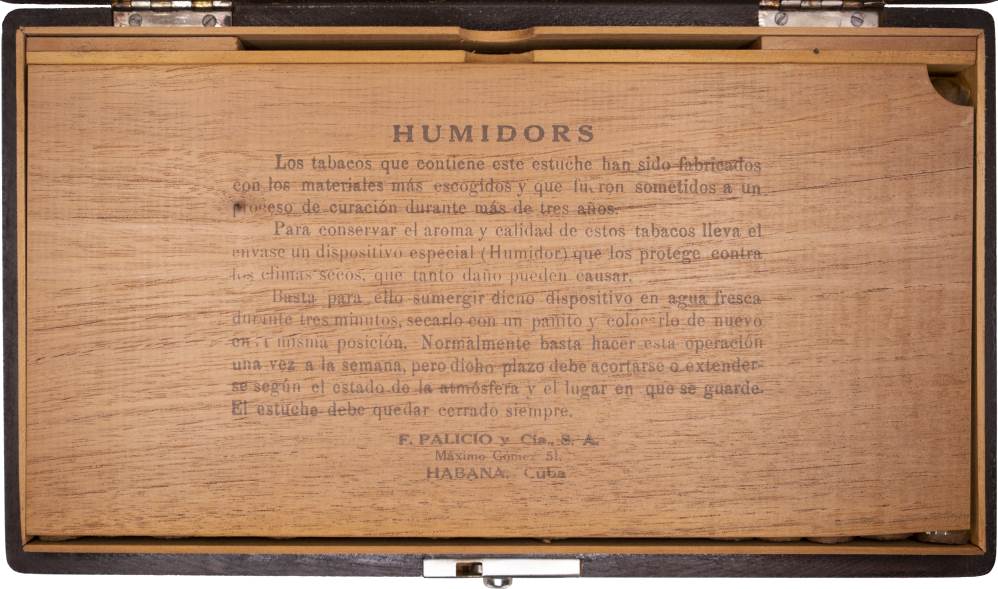 HUMIDORS
Los tabacos que contiene este estuche han sido fabricados
con los materiales más escogidos y que fueron sometidos a un
proceso de curación durante más de tres años.
Para conservar el aroma y calidad de estos tabacos lleva el
envase un dispositivo especial (Humidor) que los protege contra
los climas secos, que tanto daño pueden causar.
Basta para ello sumergir dicho dispositivo en agua fresca
durante tres minutos, secarlo con un pañito y colocarlo de nuevo
en la misma posición. Normalmente basta hacer esta operación
una vez a la semana, pero dicho plazo debe acortarse o extender-
se según el estado de la atmósfera y el lugar en que se guarde.
El estuche debe quedar cerrado siempre.
F. PALICIO y Cía., S. A.
Máximo Gómez 51.
HABANA, Cuba